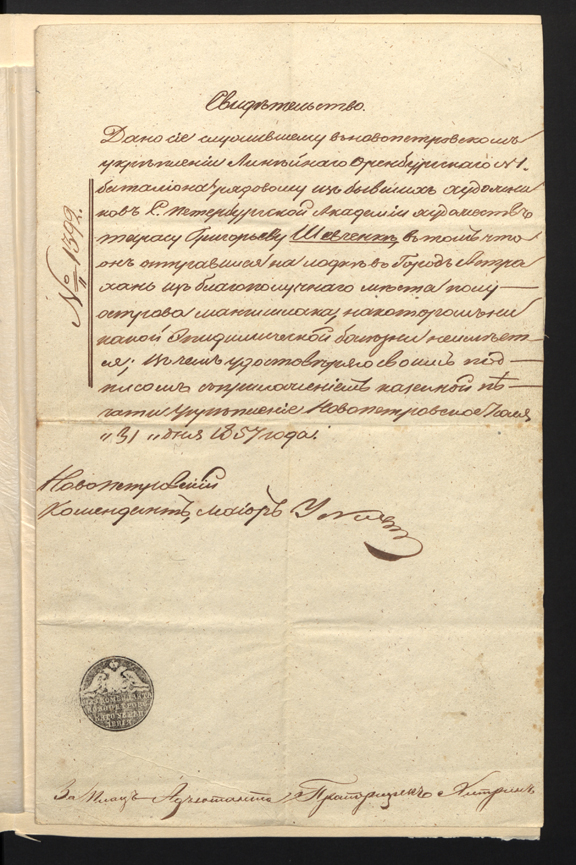 Свидѣтельство.
Дано сіе служившему въ новопетровскомъ
укрѣпленіи Линѣйнаго Оренбургскаго № 1.
баталіона рядовому изъ бывшихъ художни
ковъ С. петербургской Академіи художествъ
тарасу Григорьеву Шевченкѣ въ томъ что
онъ отправился на лодкѣ въ Городъ Астра
хань изъ благополучнаго мѣста полу-
острова мангишлака, на которомъ ни
какой Эпидемической болѣзни неимѣет-
ся; въ чемъ удостовѣряю своимъ под-
писомъ съ приложеніемъ казенной пѣ-
чати Укрѣпленіе Новопетровское Іюля
" 31 " дня 1857 года:
№ 1392.
Новопетровскій
Комендантъ, маіоръ Усковъ
За Плацъ Адъютанта Прапорщикъ